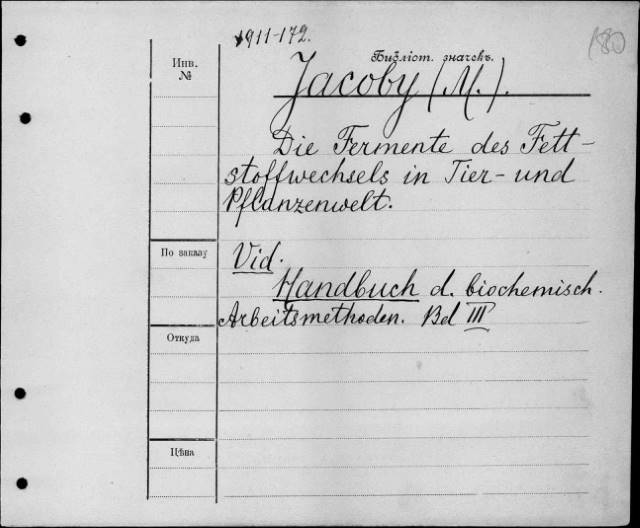 1911-172.
180
Инв.
№
Библіот. значекъ.
Jacoby (M.).
Die Fermente des Fett-
stoffwechsels in Tier- und
Pflanzenwelt.
По заказу
Vid.
Handbuch d. biochemisch.
Arbeitsmethoden. Bd III
Откуда
Цѣна